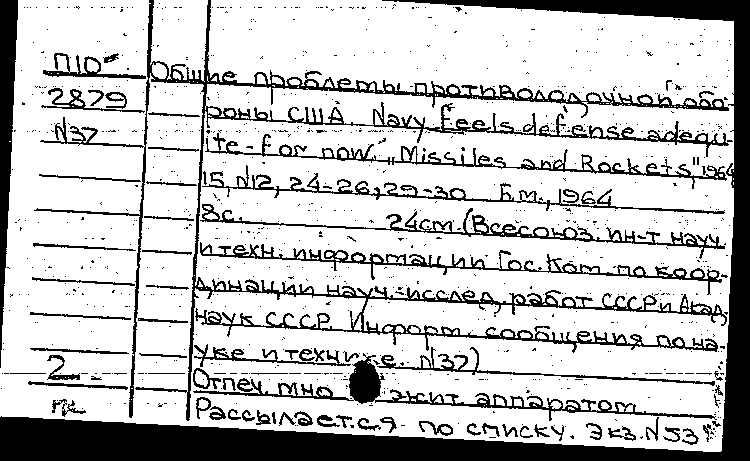 П10
Общие проблемы противолодочной обо-
2879
роны США. Navy feels defense adequ-
N37
ite-for now. „Missiles and Rockets", 1964
15, N12, 24-26, 29-30 Б.м., 1964
8с. 24см. (Всесоюз. ин-т науч.
и техн. информации Гос. Ком. по коор-
динации науч.-исслед. работ СССР и Акад.
наук СССР. Информ. сообщения по на-
уке и технике. N37)
2
Отпеч. мно жит аппаратом
Рассылается по списку. Экз. N53